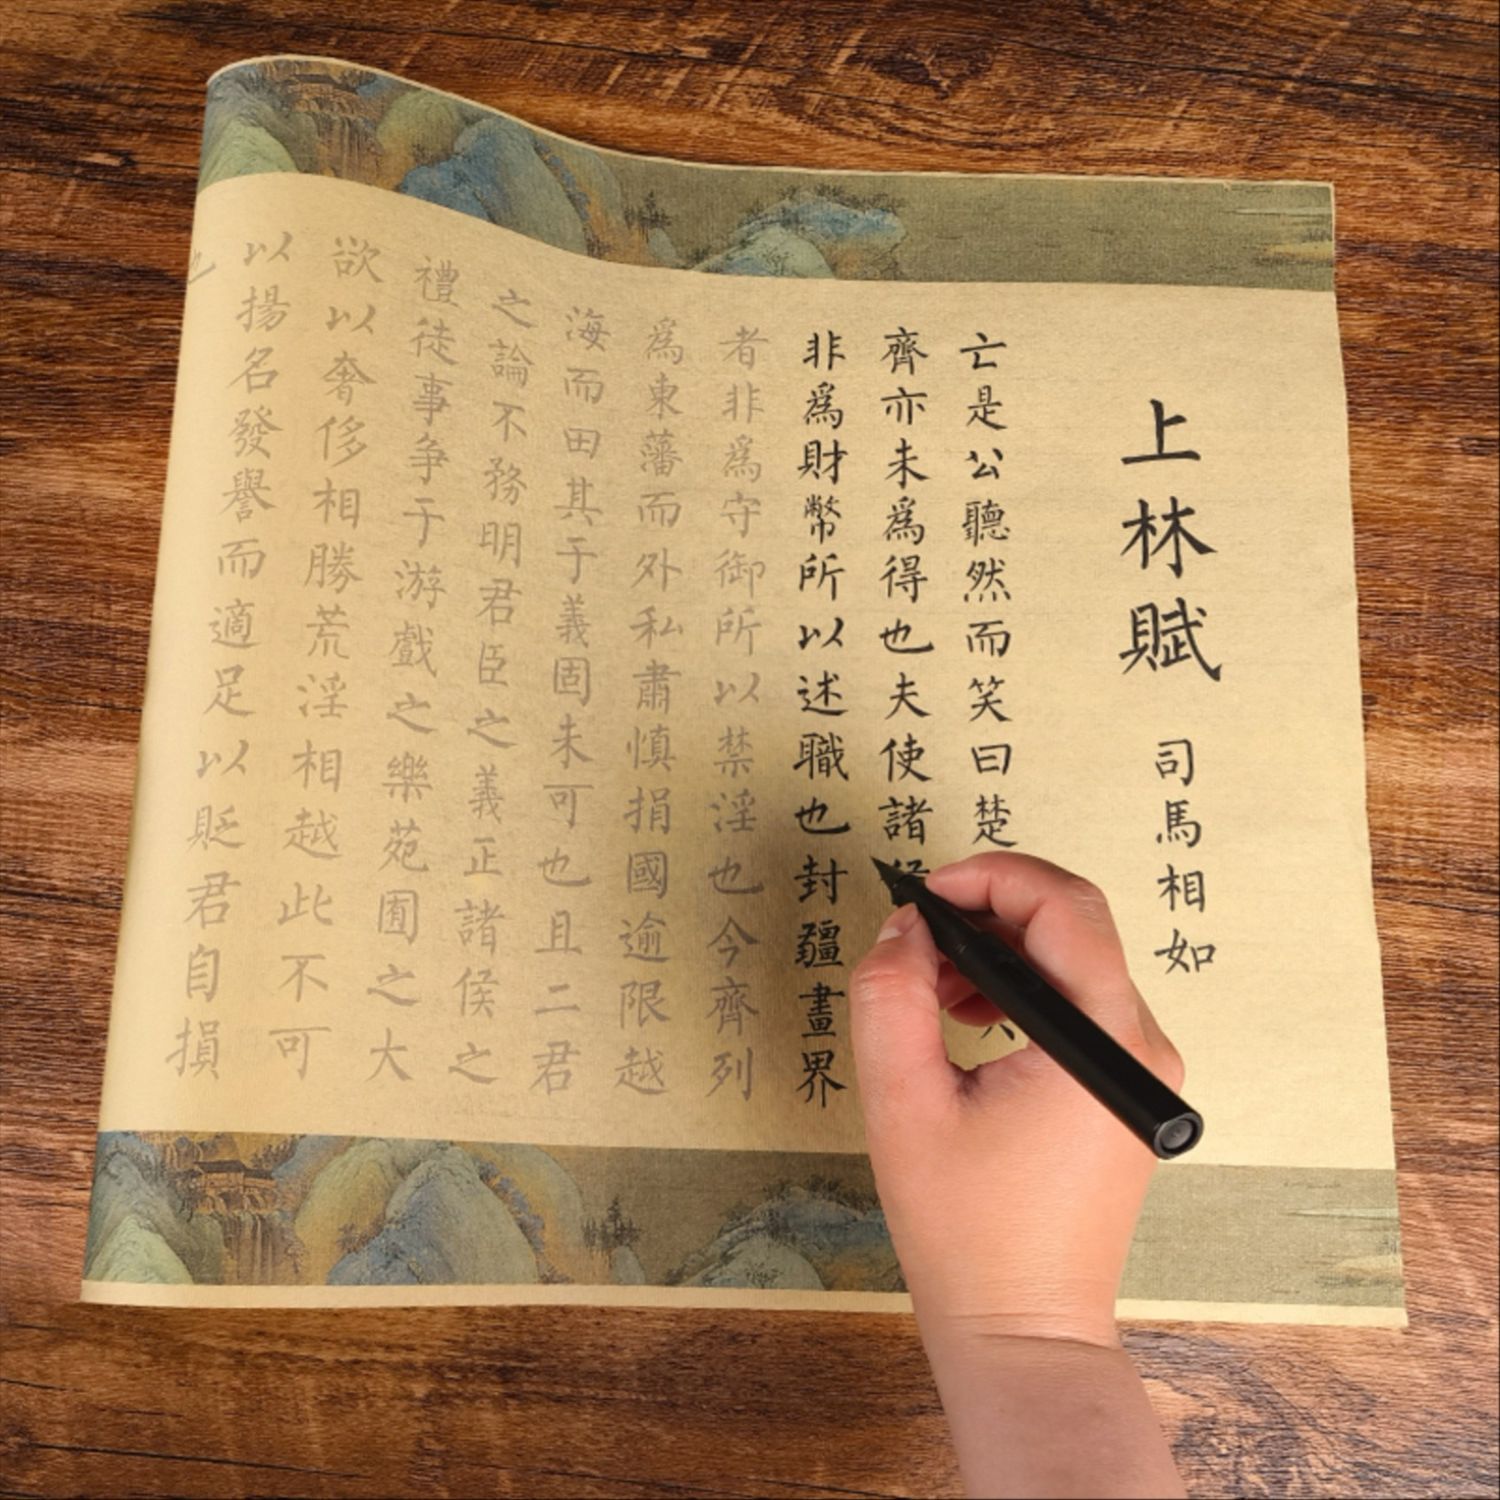 上林賦
司馬相如
亡是公聽然而笑曰楚
齊亦未為得也夫使諸
非為財幣所以述職也封疆畫界
者非為守御所以禁淫也今齊列
為東藩而外私肅慎捐國逾限越
海而田其于義固未可也且二君
之論不務明君臣之義正諸侯之
禮徒事争于游戲之樂苑囿之大
欲以奢侈相勝荒淫相越此不可
以揚名發譽而適足以貶君自損
也